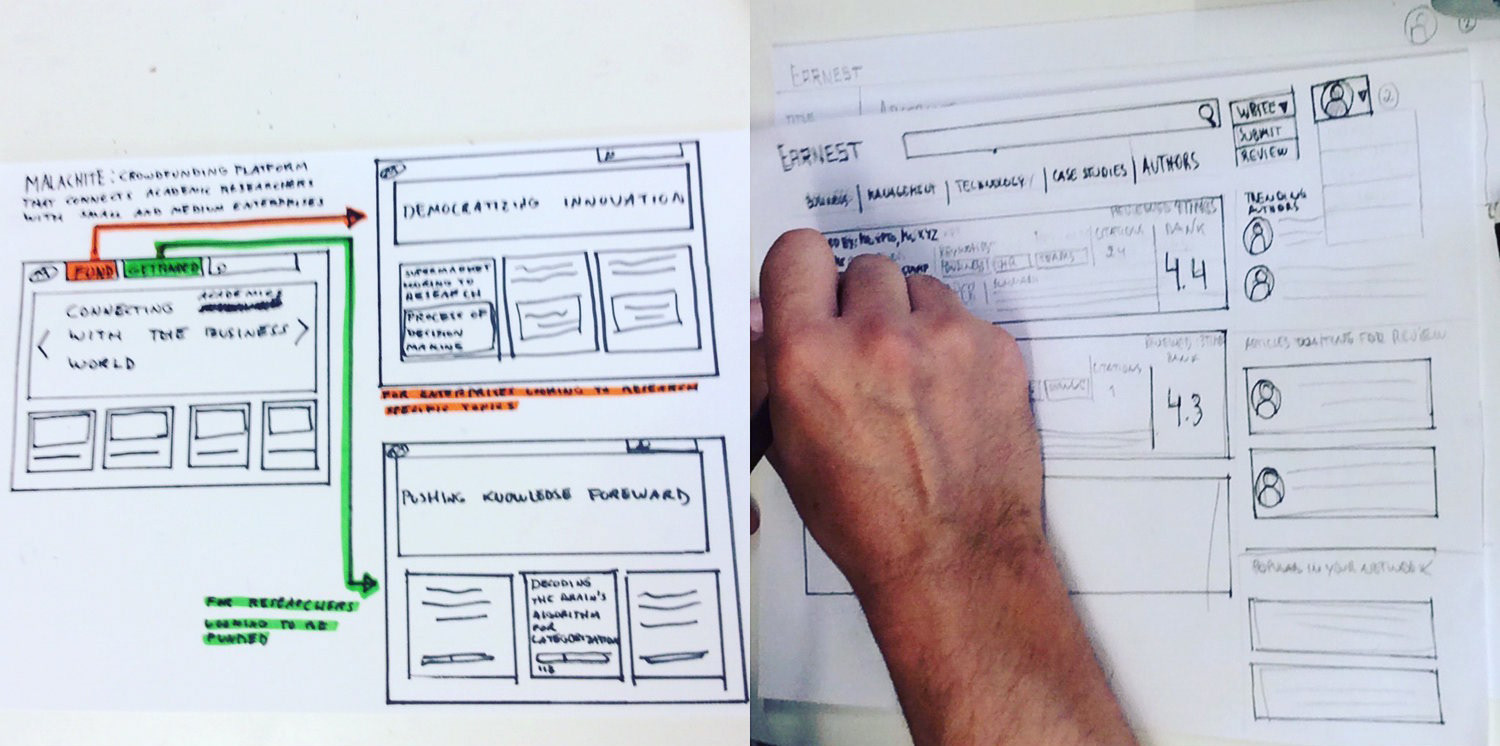 MALACHITE: CROWDFUNDING PLATFORM
THAT CONNECTS ACADEMIC RESEARCHERS
WITH SMALL AND MEDIUM ENTERPRISES
FUND
GET FUNDED
CONNECTING ACADEMICS
WITH THE BUSINESS
WORLD
DEMOCRATIZING INNOVATION
SUPERMARKET
LOOKING TO
RESEARCH
PROCESS OF
DECISION
MAKING
FOR ENTERPRISES LOOKING TO RESEARCH
SPECIFIC TOPICS
PUSHING KNOWLEDGE FOREWARD
DECODING
THE BRAIN'S
ALGORITHM
FOR
CATEGORIZATION
FOR RESEARCHERS
LOOKING TO BE
FUNDED
EARNEST
TITLE
EARNEST
WRITE
SUBMIT
REVIEW
2
BUSINESS
MANAGEMENT
TECHNOLOGY
CASE STUDIES
AUTHORS
TRENDING
AUTHORS
KEYWORDS
BUSINESS
CITATIONS
24
RANK
4.4
CITATIONS
1
RANK
4.3
ARTICLES WAITING FOR REVIEW
POPULAR IN YOUR NETWORK